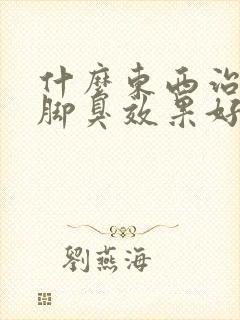 什麼東西治
脚臭效果好
劉燕海